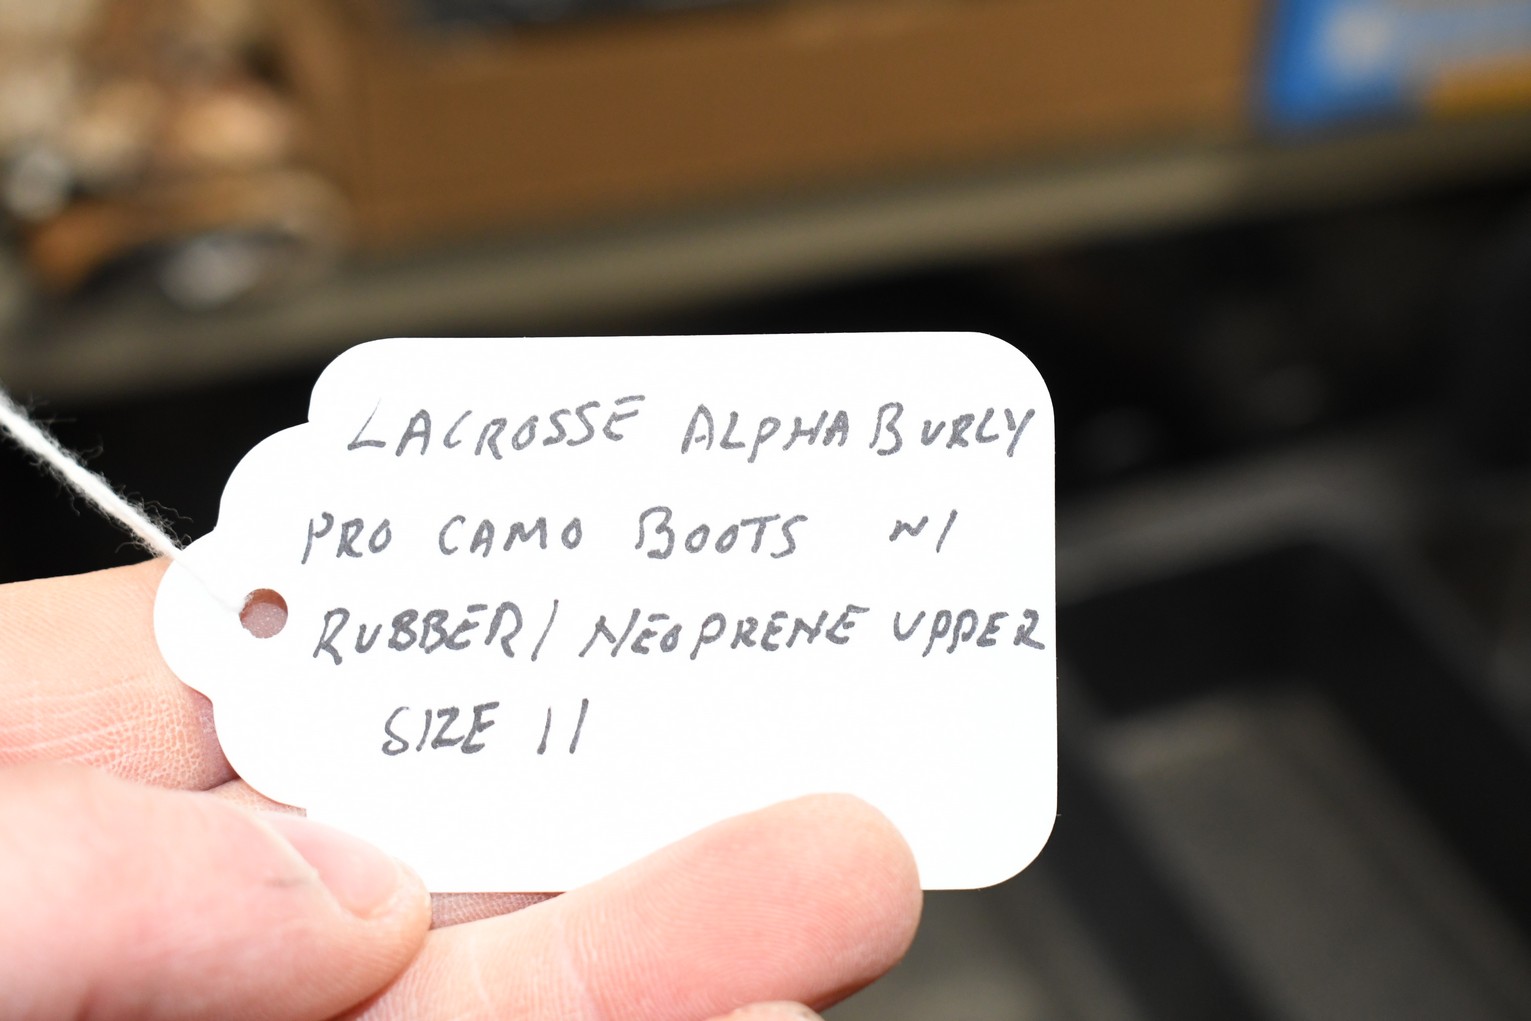 LACROSSE ALPHABURLY
PRO CAMO BOOTS W/
RUBBER/NEOPRENE UPPER
SIZE 11